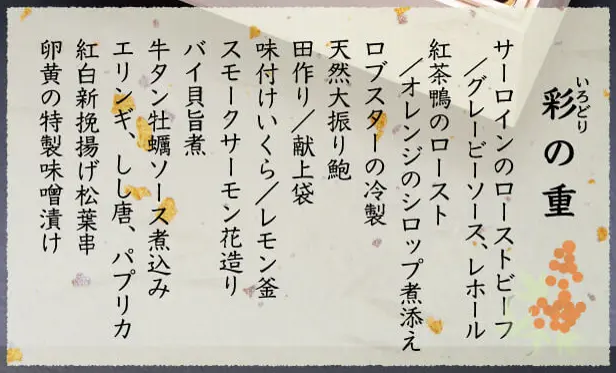 いろどり
彩の重
サーロインのローストビーフ
／グレービーソース、レホール
紅茶鴨のロースト
／オレンジのシロップ煮添え
ロブスターの冷製
天然大振り鮑
田作り／献上袋
味付けいくら／レモン釜
スモークサーモン花造り
バイ貝旨煮
牛タン牡蠣ソース煮込み
エリンギ、しし唐、パプリカ
紅白新挽揚げ松葉串
卵黄の特製味噌漬け